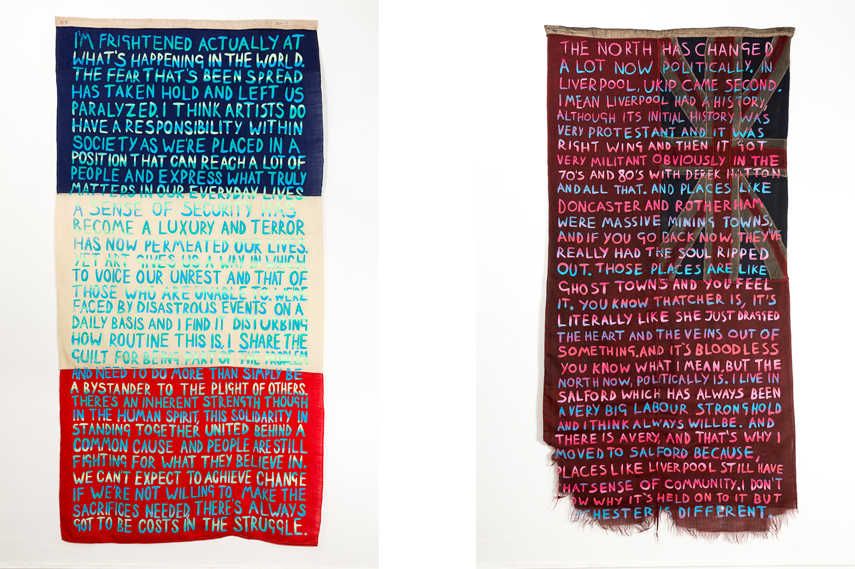 I'M FRIGHTENED ACTUALLY AT
WHAT'S HAPPENING IN THE WORLD.
THE FEAR THAT'S BEEN SPREAD
HAS TAKEN HOLD AND LEFT US
PARALYZED. I THINK ARTISTS DO
HAVE A RESPONSIBILITY WITHIN
SOCIETY AS WE'RE PLACED IN A
POSITION THAT CAN REACH A LOT OF
PEOPLE AND EXPRESS WHAT TRULY
MATTERS IN OUR EVERYDAY LIVES
A SENSE OF SECURITY HAS
BECOME A LUXURY AND TERROR
HAS NOW PERMEATED OUR LIVES.
YET ART GIVES US A WAY IN WHICH
TO VOICE OUR UNREST AND THAT OF
THOSE WHO ARE UNABLE TO. WE'RE
FACED BY DISASTROUS EVENTS ON A
DAILY BASIS AND I FIND IT DISTURBING
HOW ROUTINE THIS IS. I SHARE THE
GUILT FOR BEING PART OF THE PROBLEM
AND NEED TO DO MORE THAN SIMPLY BE
A BYSTANDER TO THE PLIGHT OF OTHERS.
THERE'S AN INHERENT STRENGTH THOUGH
IN THE HUMAN SPIRIT, THIS SOLIDARITY IN
STANDING TOGETHER UNITED BEHIND A
COMMON CAUSE AND PEOPLE ARE STILL
FIGHTING FOR WHAT THEY BELIEVE IN.
WE CAN'T EXPECT TO ACHIEVE CHANGE
IF WE'RE NOT WILLING TO MAKE THE
SACRIFICES NEEDED THERE'S ALWAYS
GOT TO BE COSTS IN THE STRUGGLE.
THE NORTH HAS CHANGED
A LOT NOW POLITICALLY. IN
LIVERPOOL, UKIP CAME SECOND.
I MEAN LIVERPOOL HAD A HISTORY,
ALTHOUGH ITS INITIAL HISTORY WAS
VERY PROTESTANT AND IT WAS
RIGHT WING AND THEN IT GOT
VERY MILITANT OBVIOUSLY IN THE
70'S AND 80'S WITH DEREK HATTON
AND ALL THAT. AND PLACES LIKE
DONCASTER AND ROTHERHAM
WERE MASSIVE MINING TOWNS,
AND IF YOU GO BACK NOW, THEY'VE
REALLY HAD THE SOUL RIPPED
OUT. THOSE PLACES ARE LIKE
GHOST TOWNS AND YOU FEEL
IT. YOU KNOW THATCHER IS, IT'S
LITERALLY LIKE SHE JUST DRAGGED
THE HEART AND THE VEINS OUT OF
SOMETHING. AND IT'S BLOODLESS
YOU KNOW WHAT I MEAN. BUT THE
NORTH NOW, POLITICALLY IS. I LIVE IN
SALFORD WHICH HAS ALWAYS BEEN
A VERY BIG LABOUR STRONGHOLD
AND I THINK ALWAYS WILL BE. AND
THERE IS A VERY, AND THAT'S WHY I
MOVED TO SALFORD BECAUSE,
PLACES LIKE LIVERPOOL STILL HAVE
THAT SENSE OF COMMUNITY. I DON'T
OW WHY IT'S HELD ON TO IT BUT
CHESTER IS DIFFERENT